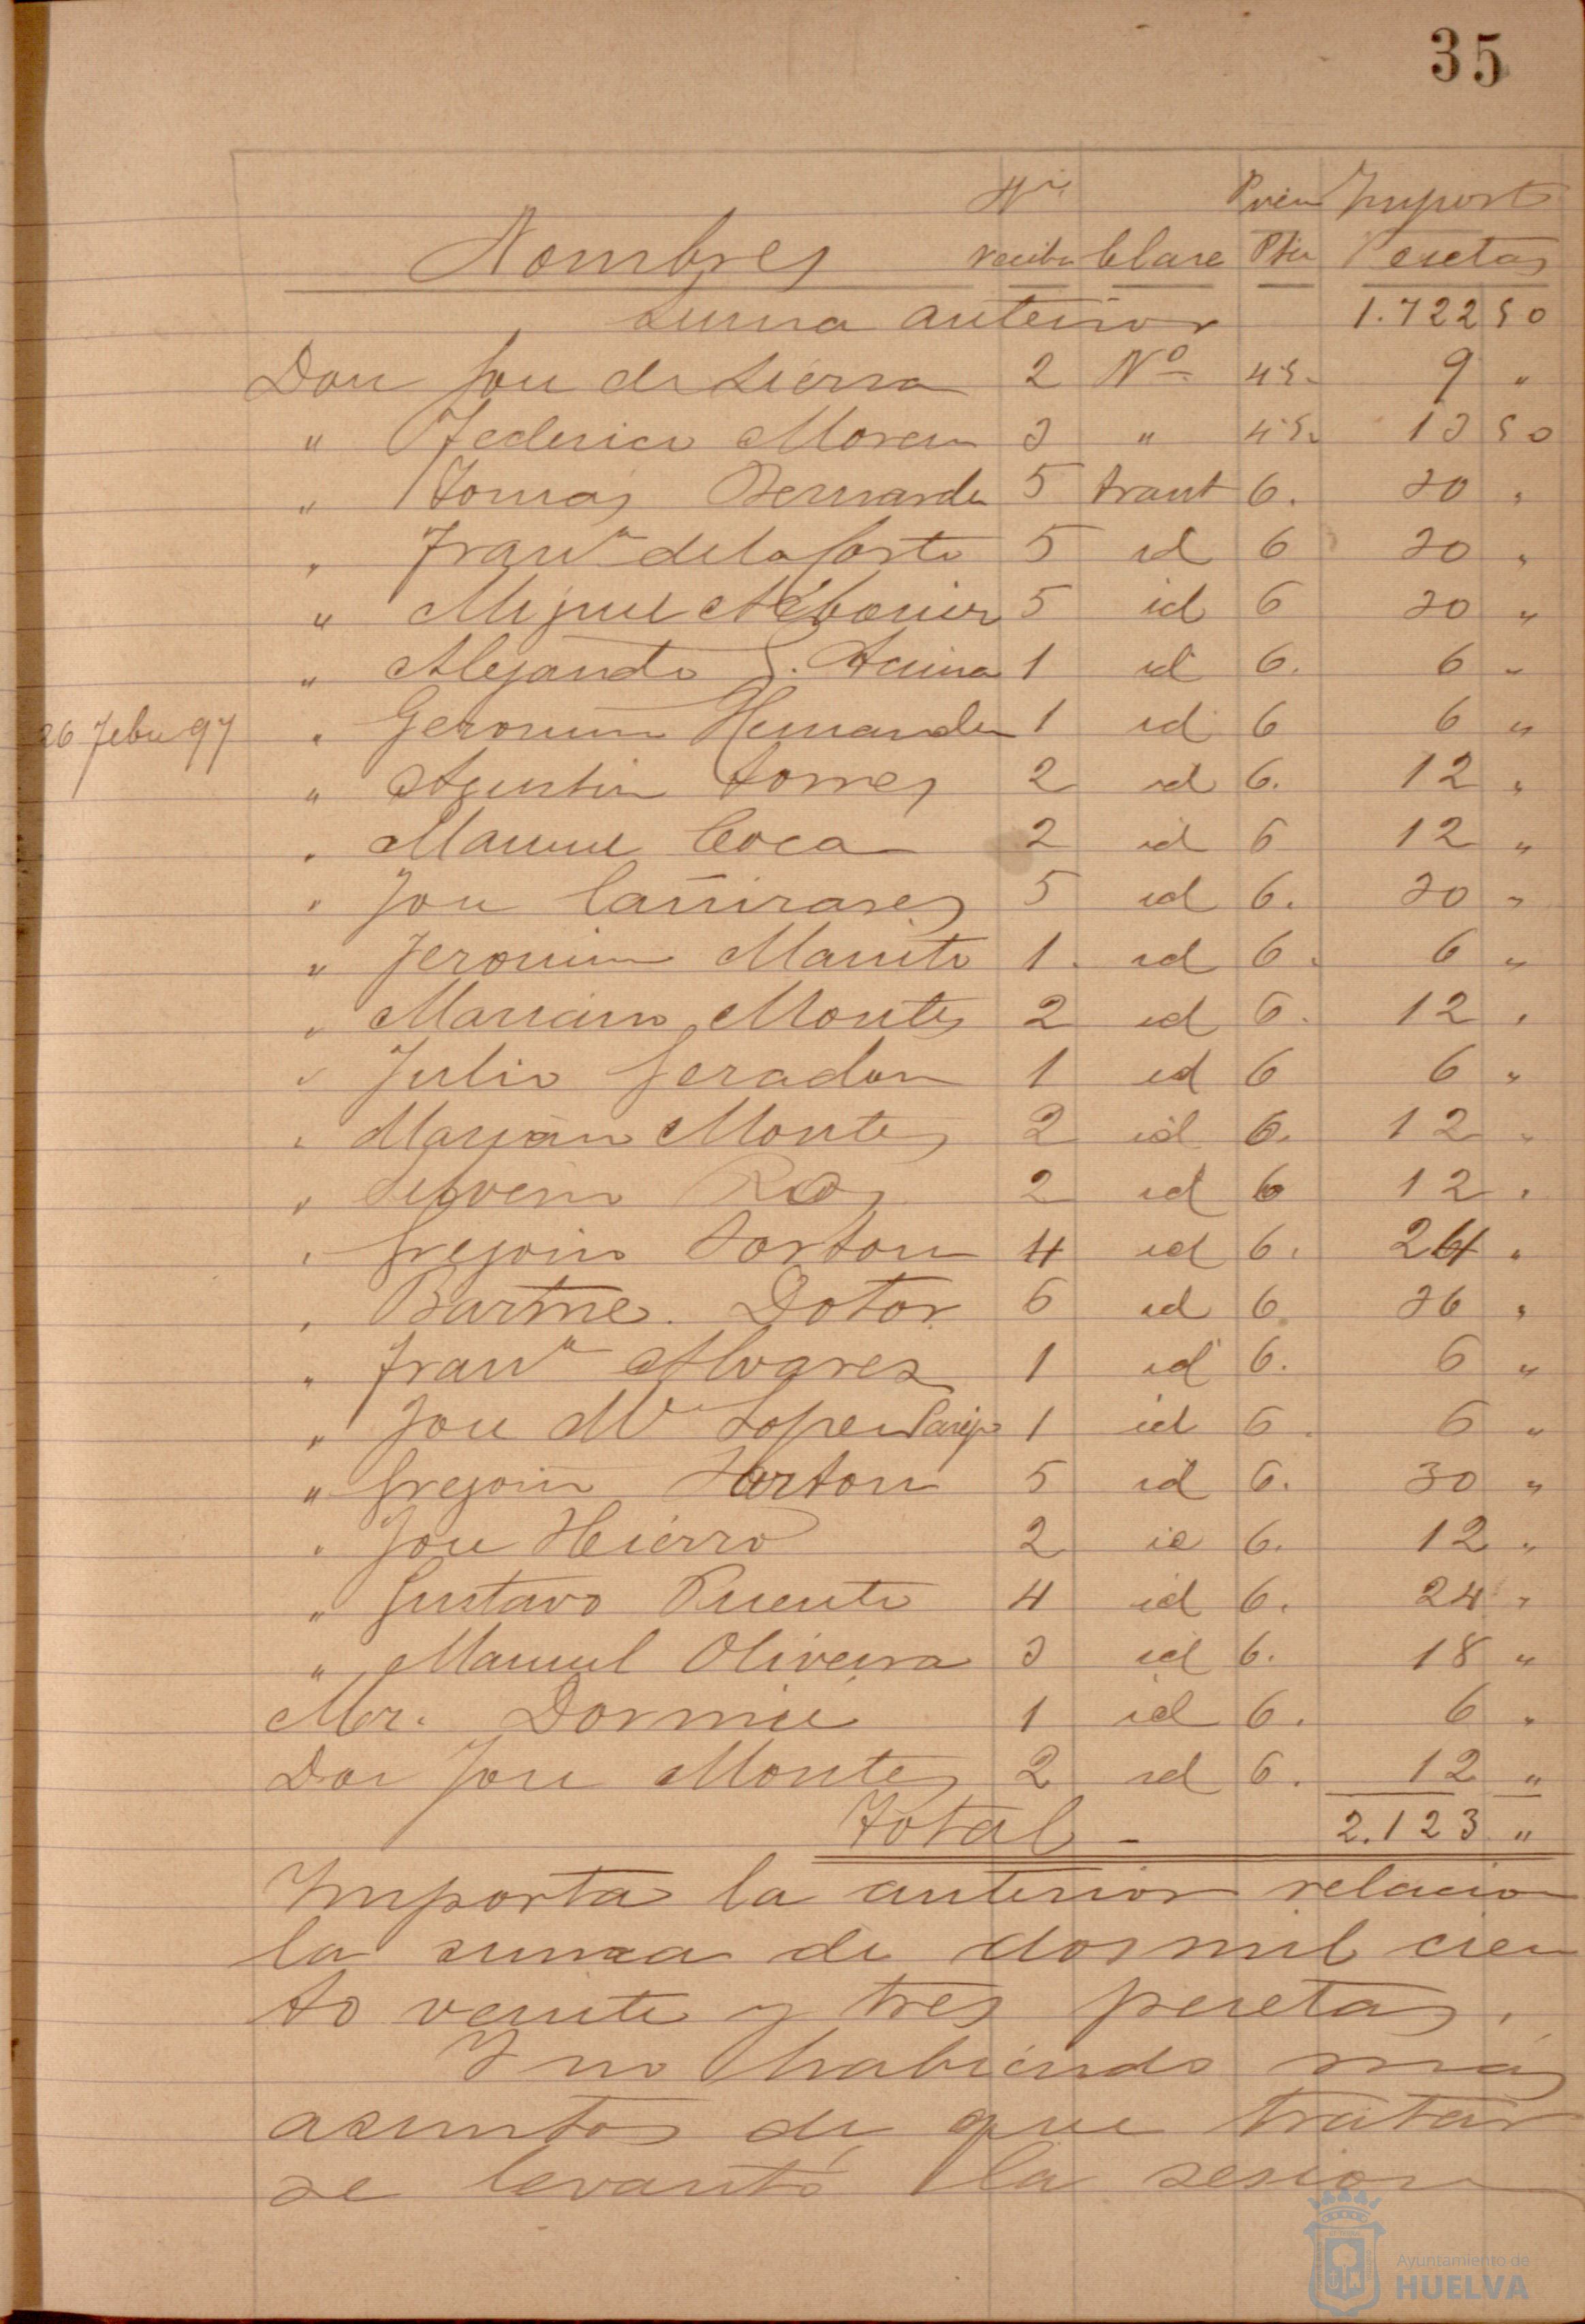 35
Nº Precio Import
Nombres recibos Clase Ptas Pesetas
Suma anterior 1.722 50
Don José de Sierra 2 Nº 4'5. 9 "
" Federico Moreno 3 " 4'5. 13 50
" Tomas Bernardez 5 trant 6. 30 "
" Franco de la Corte 5 id 6 30 "
" Miguel 5 id 6 30 "
" Alejandro S. 1 id 6. 6 "
26 Febro 97 " Geronimo Hernandez 1 id 6 6 "
" Agustin Torres 2 id 6. 12 "
" Manuel Coca 2 id 6 12 "
" José Cañizares 5 id 6. 30 "
" Jeronimo 1. id 6. 6 "
" Mariano Montes 2 id 6. 12 "
" Julio 1 id 6 6 "
" Mariano Montes 2 id 6. 12 "
" 2 id 6 12 "
" Gregorio 4 id 6. 24 "
" Bartme. Dotor 6 id 6 36 "
" Franco Alvarez 1 id 6. 6 "
" José Mª Lopez Parejo 1 id 6. 6 "
" Gregorio 5 id 6. 30 "
" José Hierro 2 id 6. 12 "
" Gustavo Puente 4 id 6. 24 "
" Manuel Oliveira 3 id 6. 18 "
Mr. 1 id 6. 6 "
Don José Montes 2 id 6. 12 "
Total - 2.123 "
Importa la anterior relacion
la suma de dos mil cien
to veinte y tres pesetas.
Y no habiendo mas
asuntos de que tratar
se levantó la sesion
Ayuntamiento de
HUELVA